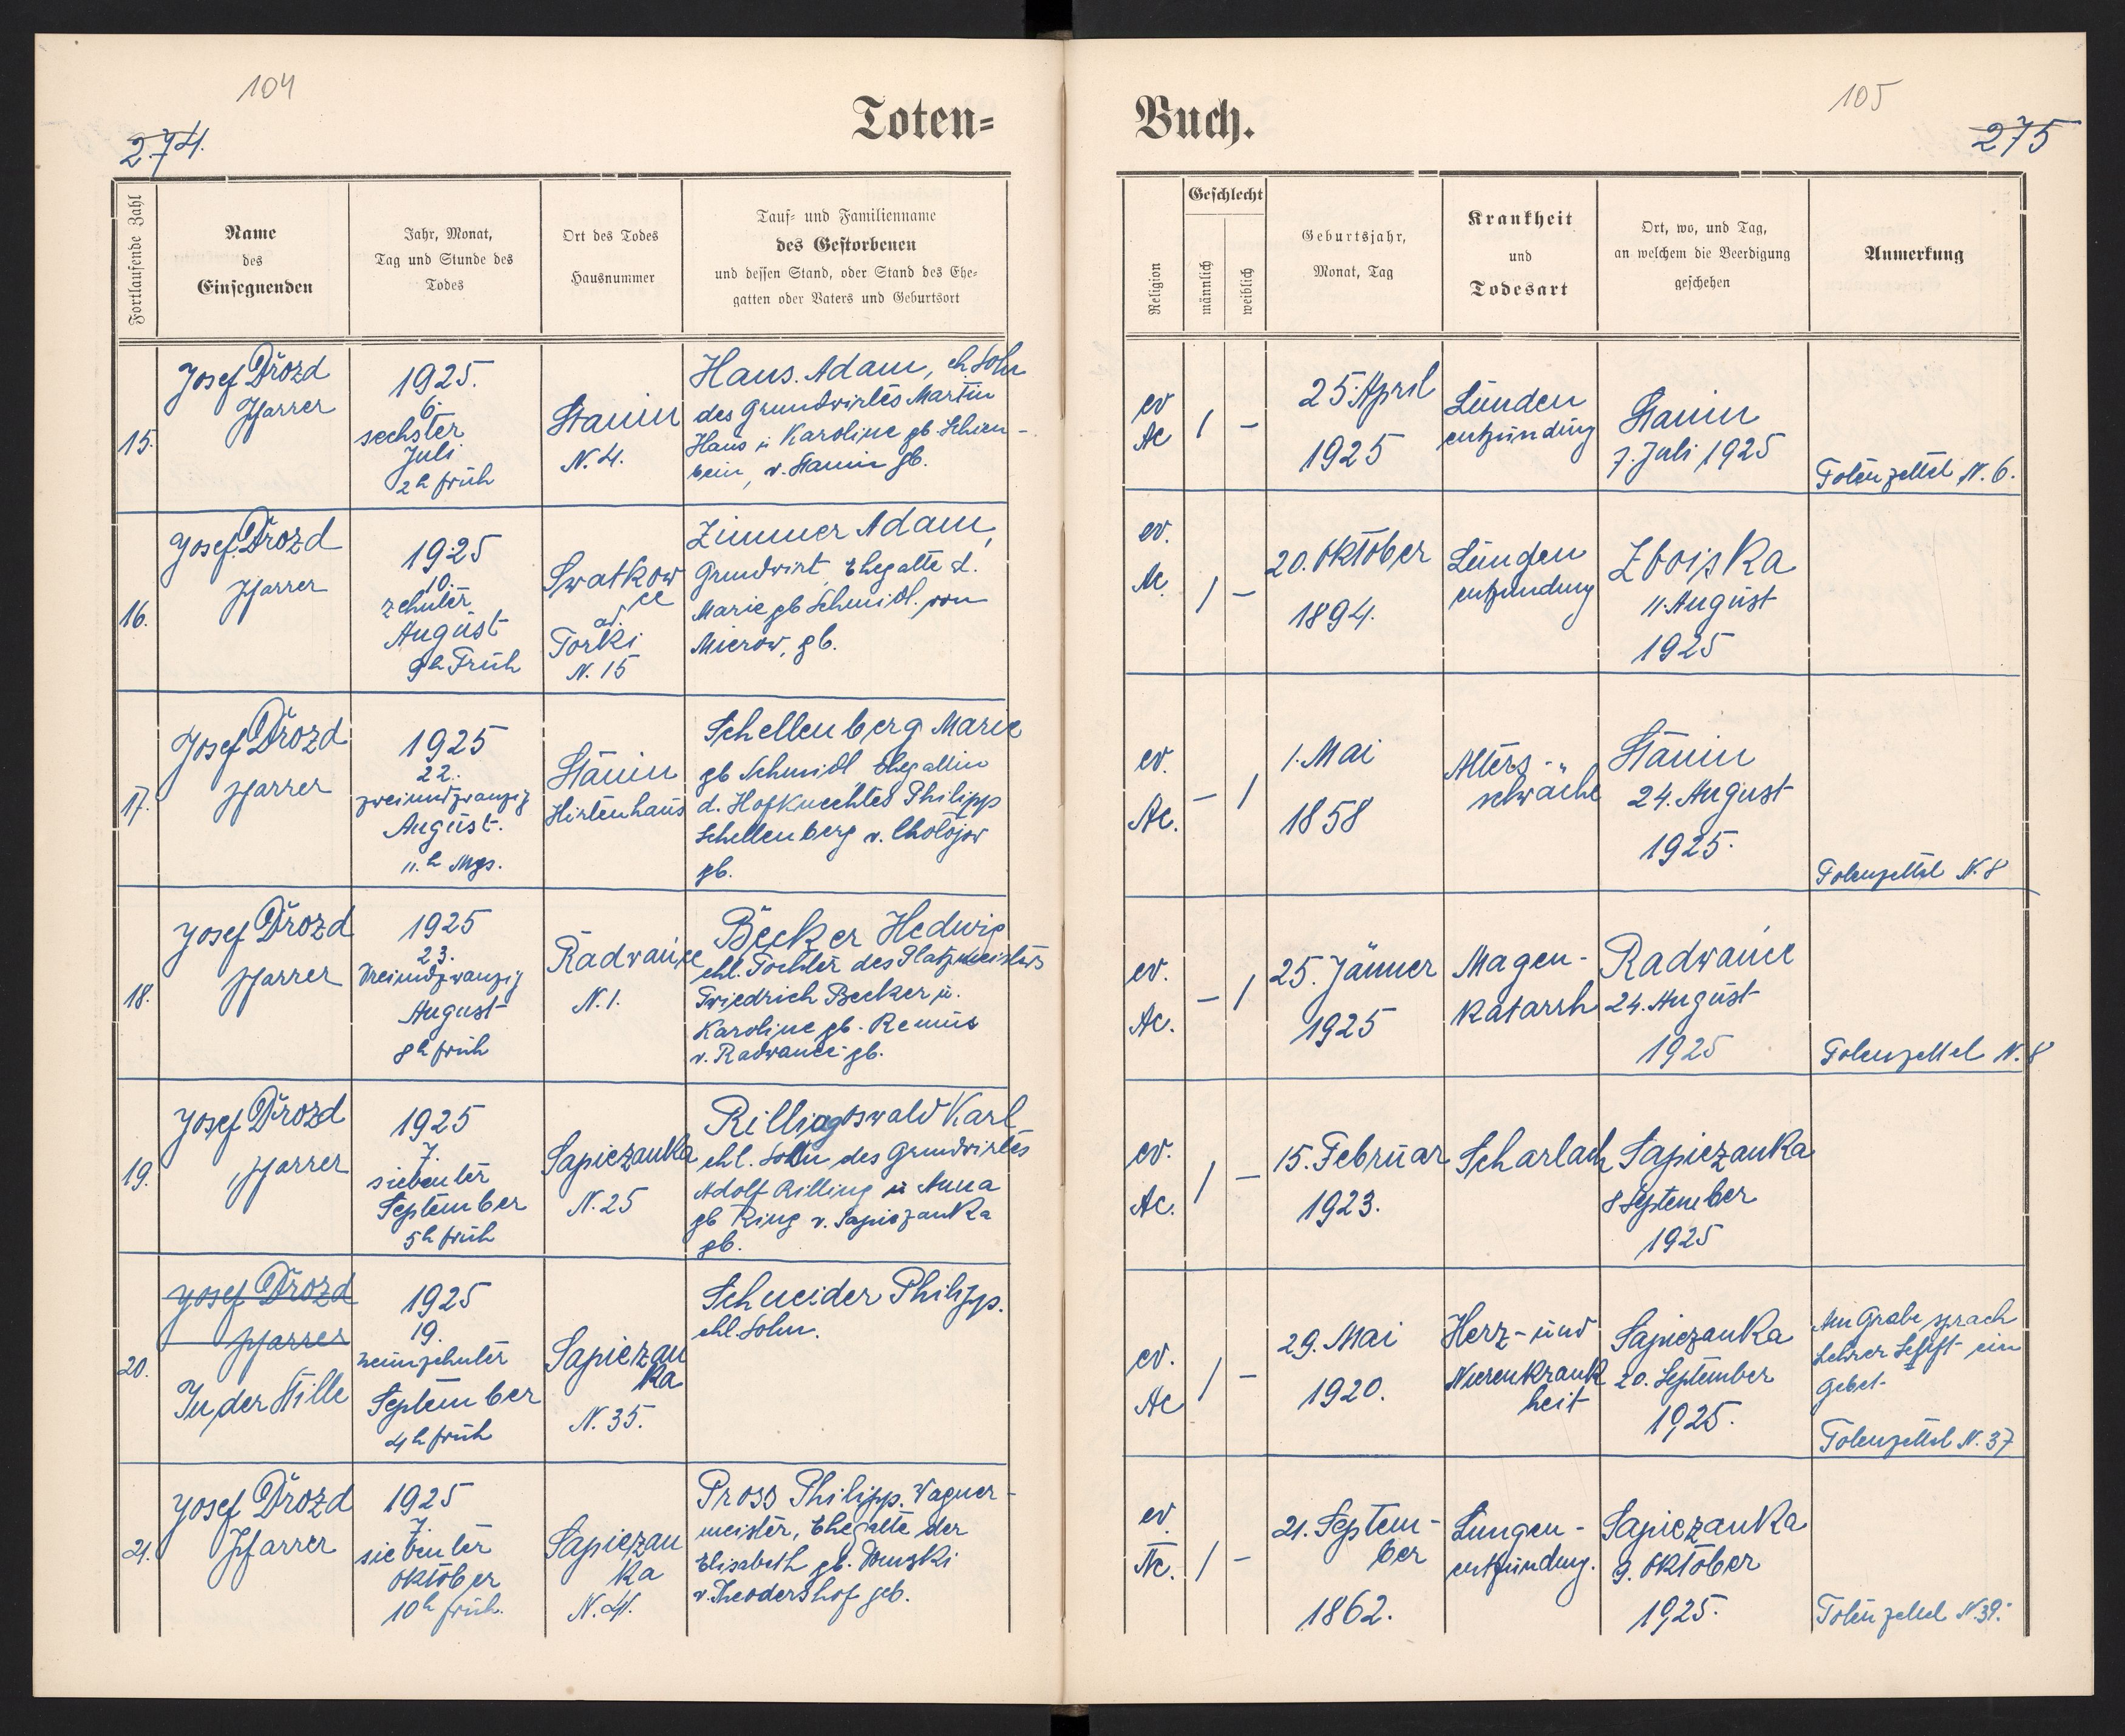 104
274.
Toten-
Fortlaufende Zahl
Name
des
Einsegnenden
Jahr, Monat,
Tag und Stunde des
Todes
Ort des Todes
Hausnummer
Tauf- und Familienname
des Gestorbenen
und dessen Stand, oder Stand des Ehe-
gatten oder Vaters und Geburtsort
15.
Josef Drozd
Pfarrer
1925.
6.
sechster
Juli
2h früh
Stanin
N. 4.
Haus. Adam, eh. Sohn
des Grundwirtes Martin
Haus u Karoline gb. Schien-
bein, v. Stanin gb.
16.
Josef Drozd
Pfarrer
1925
10.
zehnter
August
9h Früh
Swatkow
ce
ad.
Torki
N. 15
Zimmer Adam,
Grundwirt, Ehegatte d.
Marie gb Schmidt. von
Mierow, gb.
17.
Josef Drozd
Pfarrer
1925
22.
zweiundzwanzig
August.
11.h Mgs.
Stanin
Hirtenhaus
Schellenberg Marie
gb Schmidt Ehegattin
d. Hofknechtes Philipp
Schellenberg v. Cholojow
gb.
18.
Josef Drozd
Pfarrer
1925
23.
Dreiundzwanzig
August
8h früh
Radwańce
N. 1.
Becker Hedwig
ehl. Tochter des Platzmeisters
Friedrich Becker u.
Karoline gb. Remus
v. Radwance gb.
19.
Josef Drozd
Pfarrer
1925
7.
siebenter
September
5h früh
Sapiezanka
N. 25
Rilling Oswald Karl
ehl. Sohn des Grundwirtes
Adolf Rilling u Anna
gb Ring v. Sapiezanka
gb.
20.
Josef Drozd
Pfarrer
In der Stille
1925
19.
neunzehnter
September
4h früh
Sapiezan
ka
N. 35.
Schneider Philipp.
ehl. Sohn.
21.
Josef Drozd
Pfarrer
1925
7.
siebenter
Oktober
10h früh.
Sapiezan
ka
N. 41.
Pross Philipp. Wagner-
meister, Ehegatte der
Elisabeth gb.
v. Theodershof geb.
105
275
Buch.
Religion
Geschlecht
männlich
weiblich
Geburtsjahr,
Monat, Tag
Krankheit
und
Todesart
Ort, wo, und Tag,
an welchem die Beerdigung
geschehen
Anmerkung
ev
Ac
1 -
25 April
1925
Lungen
entzündung
Stanin
7. Juli 1925
Totenzettel N. 6.
ev.
Ac.
1 -
20. Oktober
1894.
Lungen
entzündung
Zboiska
11. August
1925
ev.
Ac.
- 1
1. Mai
1858
Alters-
schwäche
Stanin
24. August
1925.
Totenzettel N. 8
ev.
Ac.
- 1
25. Jänner
1925
Magen-
Katarrh
Radwańce
24. August
1925
Totenzettel N. 8
ev.
Ac.
1 -
15. Februar
1923.
Scharlach
Sapiezanka
8 September
1925
ev.
Ac
1 -
29. Mai
1920.
Herz- und
Nierenkrank
heit
Sapiezanka
20. September
1925.
Am Grabe sprach
Lehrer ein
Gebet.
Totenzettel N. 37
ev.
Ac.
1 -
21. Septem-
ber
1862.
Lungen-
entzündung.
Sapiezanka
9. Oktober
1925.
Totenzettel N. 39.